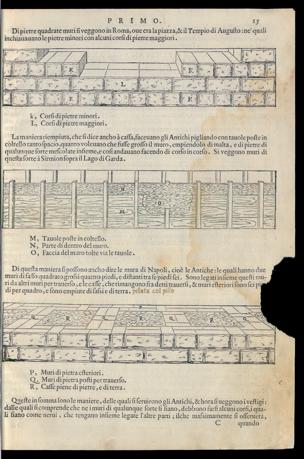 PRIMO. 13
Di pietre quadrate muri si veggono in Roma, oue era la piazza, & il Tempio di Augusto: ne' quali
inchiauauano le pietre minori con alcuni corsi di pietre maggiori.
K
K
L
K
K
K, Corsi di pietre minori.
L, Corsi di pietre maggiori.
La maniera riempiuta, che si dice ancho à cassa, faceuano gli Antichi pigliando con tauole poste in
coltello tanto spacio, quanto voleuano che fusse grosso il muro, empiendolo di malta, e di pietre di
qualunque sorte mescolate insieme, e così andauano facendo di corso in corso. Si veggono muri di
questa sorte à Sirmion sopra il Lago di Garda.
N
O
M
M, Tauole poste in coltello.
N, Parte di dentro del muro.
O, Faccia del muro tolte via le tauole.
Di questa maniera si possono anchor dire le mura di Napoli, cioè le Antiche: le quali hanno due
muri di sasso quadrato grossi quattro piedi, e distanti tra se piedi sei. Sono legati insieme questi mu-
ri da altri muri per trauerso, e le casse, che rimangono fra detti trauersi, & muri esteriori sono sei pie
di per quadro, e sono empiute di sassi e di terra.
P, Muri di pietra esteriori.
Q, Muri di pietra posti per trauerso.
R, Casse piene di pietre, e di terra.
Queste in somma sono le maniere, delle quali si seruirono gli Antichi, & hora si veggono i vestigi:
dalle quali si comprende che ne i muri di qualunque sorte si siano, debbono farsi alcuni corsi, i qua-
li siano come nerui, che tengano insieme legate l'altre parti; ilche massimamente si osseruerà,
C quando